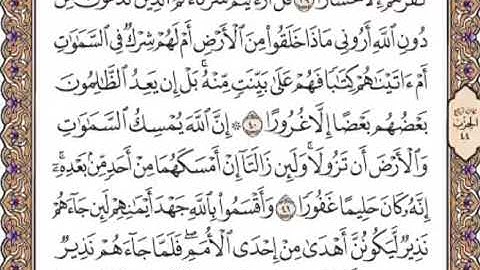 كُفْرُهُمْ إِلَّا خَسَارًا ٣٩ قُلْ أَرَءَيْتُمْ شُرَكَاءَكُمُ الَّذِينَ تَدْعُونَ مِن
دُونِ اللَّهِ أَرُونِي مَاذَا خَلَقُوا مِنَ الْأَرْضِ أَمْ لَهُمْ شِرْكٌ فِي السَّمَٰوَٰتِ
أَمْ ءَاتَيْنَٰهُمْ كِتَٰبًا فَهُمْ عَلَىٰ بَيِّنَتٍ مِّنْهُ ۚ بَلْ إِن يَعِدُ الظَّٰلِمُونَ
بَعْضُهُم بَعْضًا إِلَّا غُرُورًا ٤٠ ۞ إِنَّ اللَّهَ يُمْسِكُ السَّمَٰوَٰتِ
وَالْأَرْضَ أَن تَزُولَا ۚ وَلَئِن زَالَتَا إِنْ أَمْسَكَهُمَا مِنْ أَحَدٍ مِّنۢ بَعْدِهِ ۚ
إِنَّهُ كَانَ حَلِيمًا غَفُورًا ٤١ وَأَقْسَمُوا بِاللَّهِ جَهْدَ أَيْمَٰنِهِمْ لَئِن جَاءَهُمْ
نَذِيرٌ لَّيَكُونُنَّ أَهْدَىٰ مِنْ إِحْدَى الْأُمَمِ ۖ فَلَمَّا جَاءَهُمْ نَذِيرٌ
الحزب
٤٤